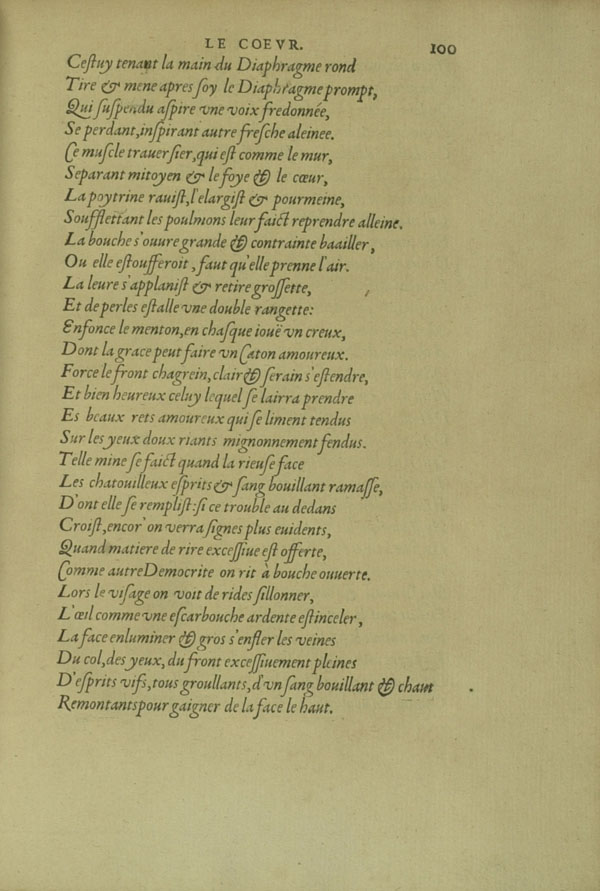 LE COEVR. 100
Ceſtuy tenant la main du Diaphragme rond
Tire & mene apres ſoy le Diaphragme prompt,
Qui ſuſpendu aſpire vne voix fredonnée,
Se perdant,inſpirant autre freſche aleinee.
Ce muſcle trauerſier,qui eſt comme le mur,
Separant mitoyen & le foye & le cœur,
La poytrine rauiſt,l'elargiſt & pourmeine,
Soufflettant les poulmons leur faict reprendre alleine.
La bouche s'ouure grande & contrainte baailler,
Ou elle eſtoufferoit, faut qu'elle prenne l'air.
La leure s'applaniſt & retire groſſette,
Et de perles eſtalle vne double rangette:
Enfonce le menton,en chaſque iouë vn creux,
Dont la grace peut faire vn Caton amoureux.
Force le front chagrein,clair & ſerain s'eſtendre,
Et bien heureux celuy lequel ſe lairra prendre
Es beaux rets amoureux qui ſe liment tendus
Sur les yeux doux riants mignonnement fendus.
Telle mine ſe faict quand la rieuſe face
Les chatouilleux eſprits & ſang bouillant ramaſſe,
D'ont elle ſe rempliſt:ſi ce trouble au dedans
Croiſt,encor' on verra ſignes plus euidents,
Quand matiere de rire exceſſiue eſt offerte,
Comme autre Democrite on rit à bouche ouuerte.
Lors le viſage on voit de rides ſillonner,
L'œil comme vne eſcarbouche ardente eſtinceler,
La face enluminer & gros s'enfler les veines
Du col,des yeux, du front exceſſiuement pleines
D'eſprits vifs,tous groullants,d'vn ſang bouillant & chaut
Remontants pour gaigner de la face le haut.